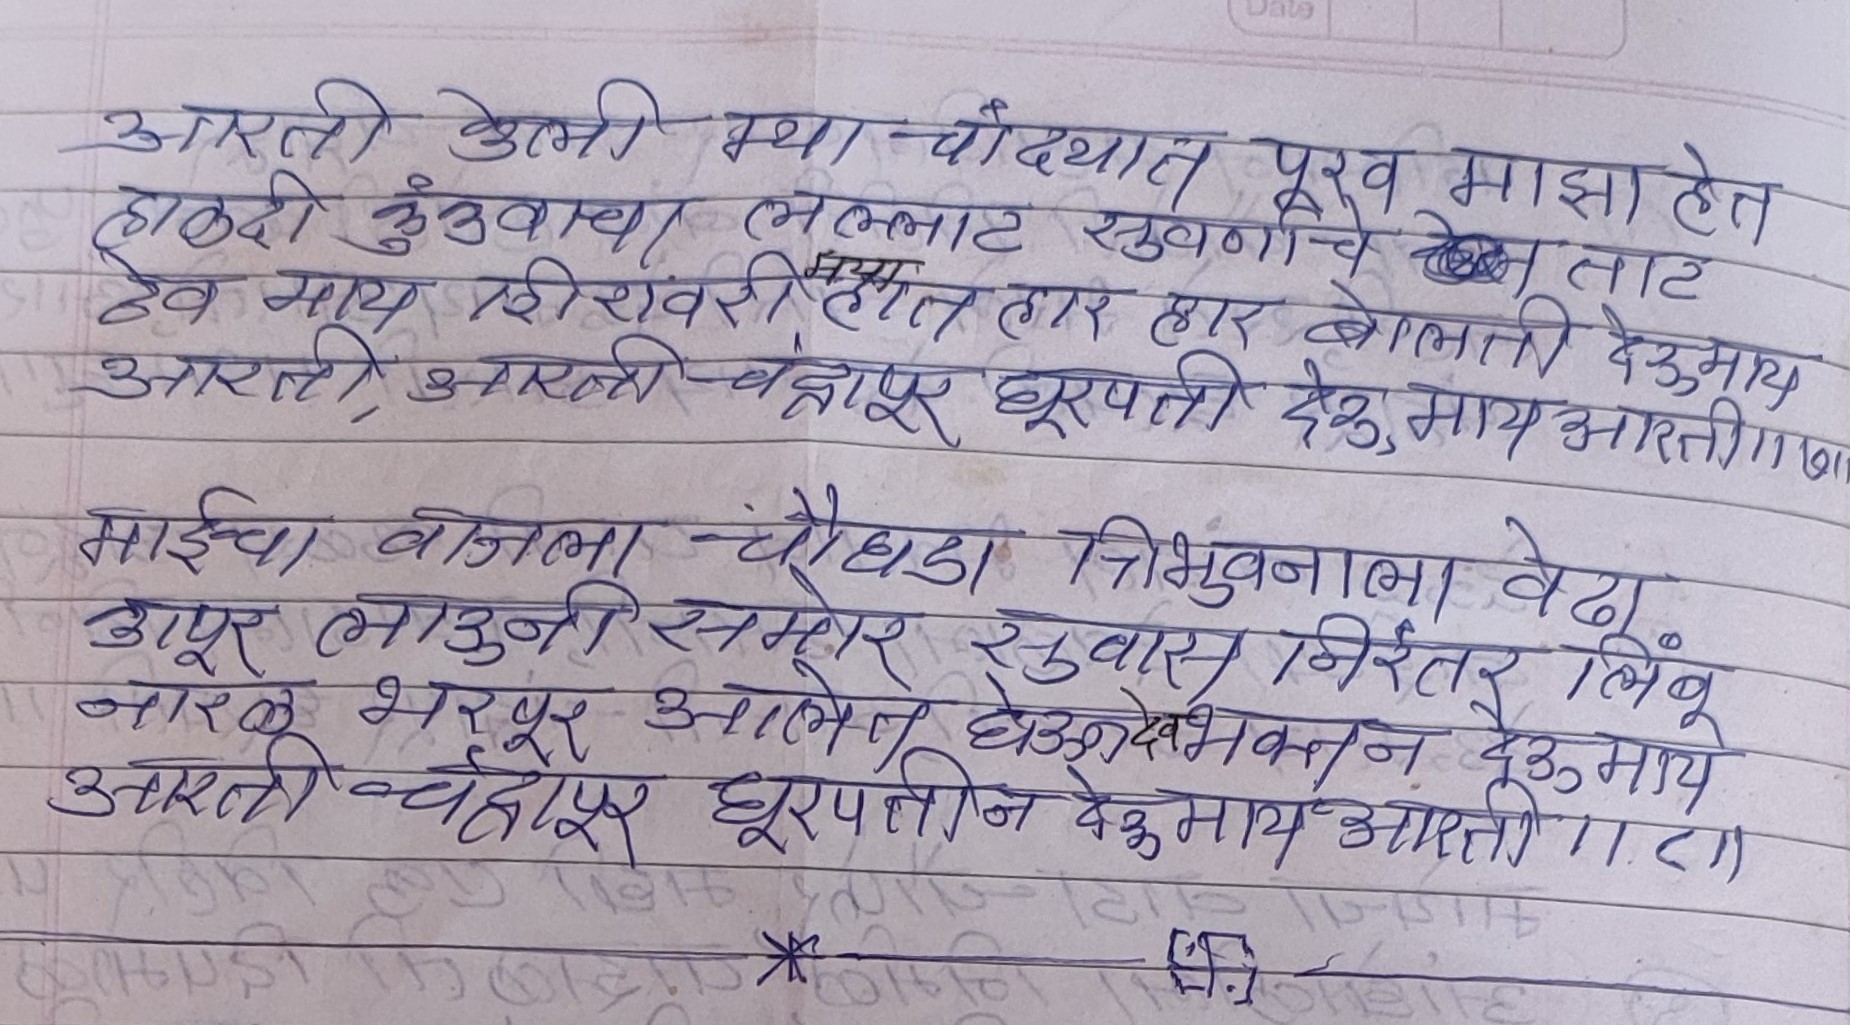 Date
आरती केली म्या चाँदयात पूरव माझा हेत
हाळदी कुंकवाचा लल्लाट सुवर्णाचे ताट
देव माय शिरावरी हात हार हार बोलती देऊ माय
आरती, आरती चंद्रापूर घूरपती देऊ माय आरती ॥७॥
माईचा वाजला चौघडा त्रिभुवनाला वेढा
कापूर लाऊनी समोर सुवास निरंतर लिंबू
नारळ भरपूर आलेत घेऊन देव भक्तन देऊ माय
आरती चंद्रापूर घूरपतीन देऊ माय आरती ॥८॥